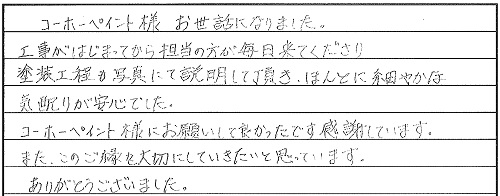 コーホーペイント様 お世話になりました。
工事がはじまってから担当の方が毎日来てくださり
塗装工程も写真にて説明して頂き、ほんとに細やかな
気配りが安心でした。
コーホーペイント様にお願いして良かったです感謝しています。
また、このご縁を大切にしていきたいと思っています。
ありがとうございました。